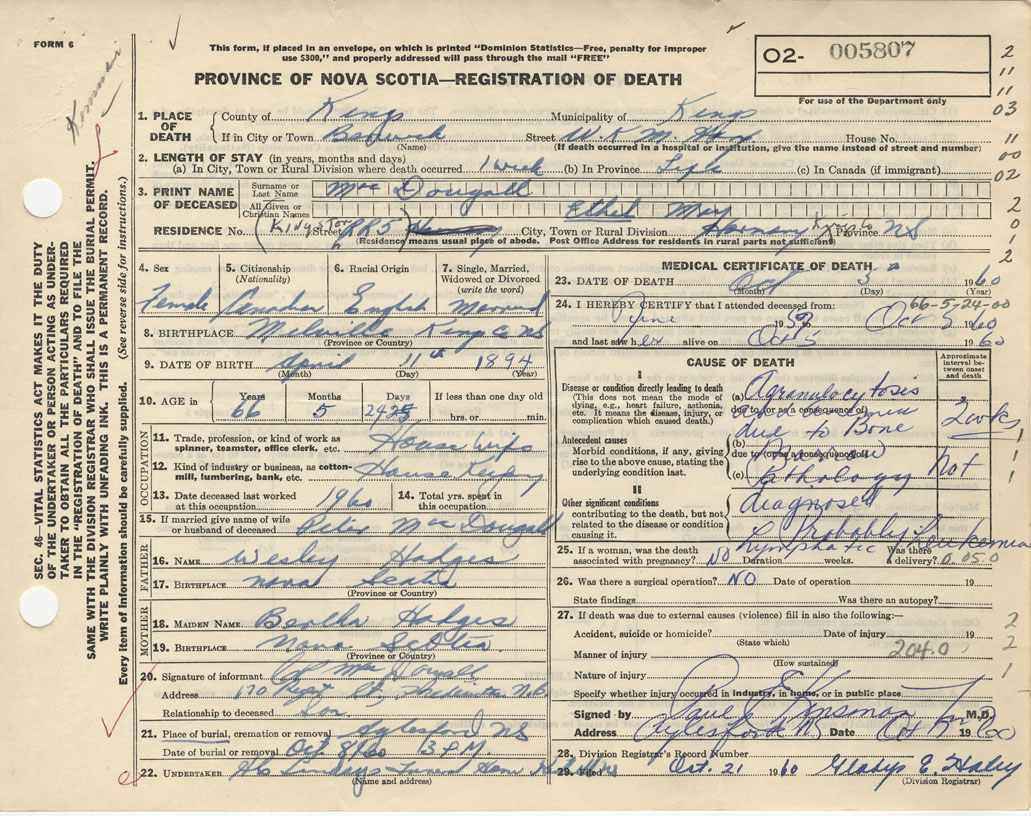 FORM 6
This form, if placed in an envelope, on which is printed "Dominion Statistics—Free, penalty for improper
use $300," and properly addressed will pass through the mail "FREE"
PROVINCE OF NOVA SCOTIA—REGISTRATION OF DEATH
O2- 005807
For use of the Department only
2
11
11
03
11
00
02
2
0
1
2
SEC. 46—VITAL STATISTICS ACT MAKES IT THE DUTY
OF THE UNDERTAKER OR PERSON ACTING AS UNDER-
TAKER TO OBTAIN ALL THE PARTICULARS REQUIRED
IN THE "REGISTRATION OF DEATH" AND TO FILE THE
SAME WITH THE DIVISION REGISTRAR WHO SHALL ISSUE THE BURIAL PERMIT.
WRITE PLAINLY WITH UNFADING INK. THIS IS A PERMANENT RECORD.
Every item of information should be carefully supplied. (See reverse side for instructions.)
1. PLACE OF DEATH
County of Kings Municipality of Kings
If in City or Town Berwick Street W.K.M. Hosp House No.
(Name) (If death occurred in a hospital or institution, give the name instead of street and number)
2. LENGTH OF STAY (in years, months and days)
(a) In City, Town or Rural Division where death occurred 1 week (b) In Province Life (c) In Canada (if immigrant)
3. PRINT NAME OF DECEASED
Surname or Last Name Mac Dougall
All Given or Christian Names Ethel May
RESIDENCE No. Street RR5 City, Town or Rural Division Harmony Kings Co Province NS
(Residence means usual place of abode. Post Office Address for residents in rural parts not sufficient)
4. Sex
Female
5. Citizenship
(Nationality)
Canadian
6. Racial Origin
English
7. Single, Married,
Widowed or Divorced
(write the word)
Married
8. BIRTHPLACE Melville Kings Co NS
(Province or Country)
9. DATE OF BIRTH April 11th 1894
(Month) (Day) (Year)
10. AGE in Years Months Days If less than one day old
66 5 24 hrs. or min.
OCCUPATION
11. Trade, profession, or kind of work as
spinner, teamster, office clerk, etc. House Wife
12. Kind of industry or business, as cotton-
mill, lumbering, bank, etc. House Keeping
13. Date deceased last worked
at this occupation 1960
14. Total yrs. spent in
this occupation
15. If married give name of wife
or husband of deceased Peter MacDougall
FATHER
16. NAME Wesley Hodges
17. BIRTHPLACE Nova Scotia
(Province or Country)
MOTHER
18. MAIDEN NAME Bertha Hodges
19. BIRTHPLACE Nova Scotia
(Province or Country)
20. Signature of informant
Address 170 St,
Relationship to deceased Son
21. Place of burial, cremation or removal Aylesford NS
Date of burial or removal Oct 8/60 3 P.M.
22. UNDERTAKER
(Name and address)
MEDICAL CERTIFICATE OF DEATH
23. DATE OF DEATH Oct 5 1960
(Month) (Day) (Year)
66-5-24-00
24. I HEREBY CERTIFY that I attended deceased from:
June 19 Oct 5 1960
and last saw her alive on Oct 5 1960
CAUSE OF DEATH
Approximate
interval
between onset
and death
I
Disease or condition directly leading to death
(This does not mean the mode of
dying, e.g., heart failure, asthenia,
etc. It means the disease, injury, or
complication which caused death.)
(a) Agranulocytosis
due to (or as a consequence of)
Antecedent causes
Morbid conditions, if any, giving
rise to the above cause, stating the
underlying condition last.
(b) due to Bone
due to (or as a consequence of)
Marrow
(c) Pathology Not
II
Other significant conditions
contributing to the death, but not
related to the disease or condition
causing it.
diagnosed
Probably
lymphatic Leukemia
25. If a woman, was the death
associated with pregnancy? NO Duration weeks. Was there
a delivery?
26. Was there a surgical operation? NO Date of operation 19
State findings Was there an autopsy?
27. If death was due to external causes (violence) fill in also the following:—
Accident, suicide or homicide? Date of injury 19
(State which)
Manner of injury 204.0
(How sustained)
Nature of injury
Specify whether injury occurred in industry, in home, or in public place
Signed by Paul E Kinsman M.D.
Address Aylesford NS Date Oct 7 1960
28. Division Registrar's Record Number
29. Filed Oct. 21 1960 Gladys E. Haley
(Division Registrar)